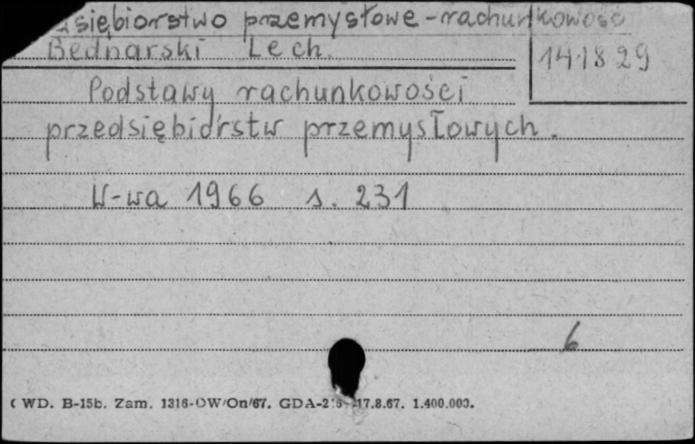 przemysłowe-rachunkowość
Bednarski Lech.
141829
Podstawy rachunkowości
przedsiębiorstw przemysłowych.
W-wa 1966 s. 231
6
WD. B-15b. Zam. 1316-OW/On/67. 17.8.67. 1.400.000.